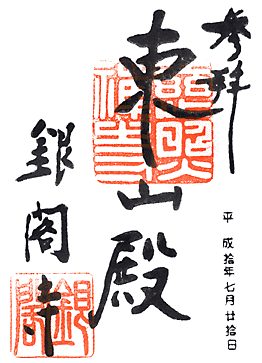 参拝
平成拾年七月廿拾日
東山殿
銀閣寺
銀閣